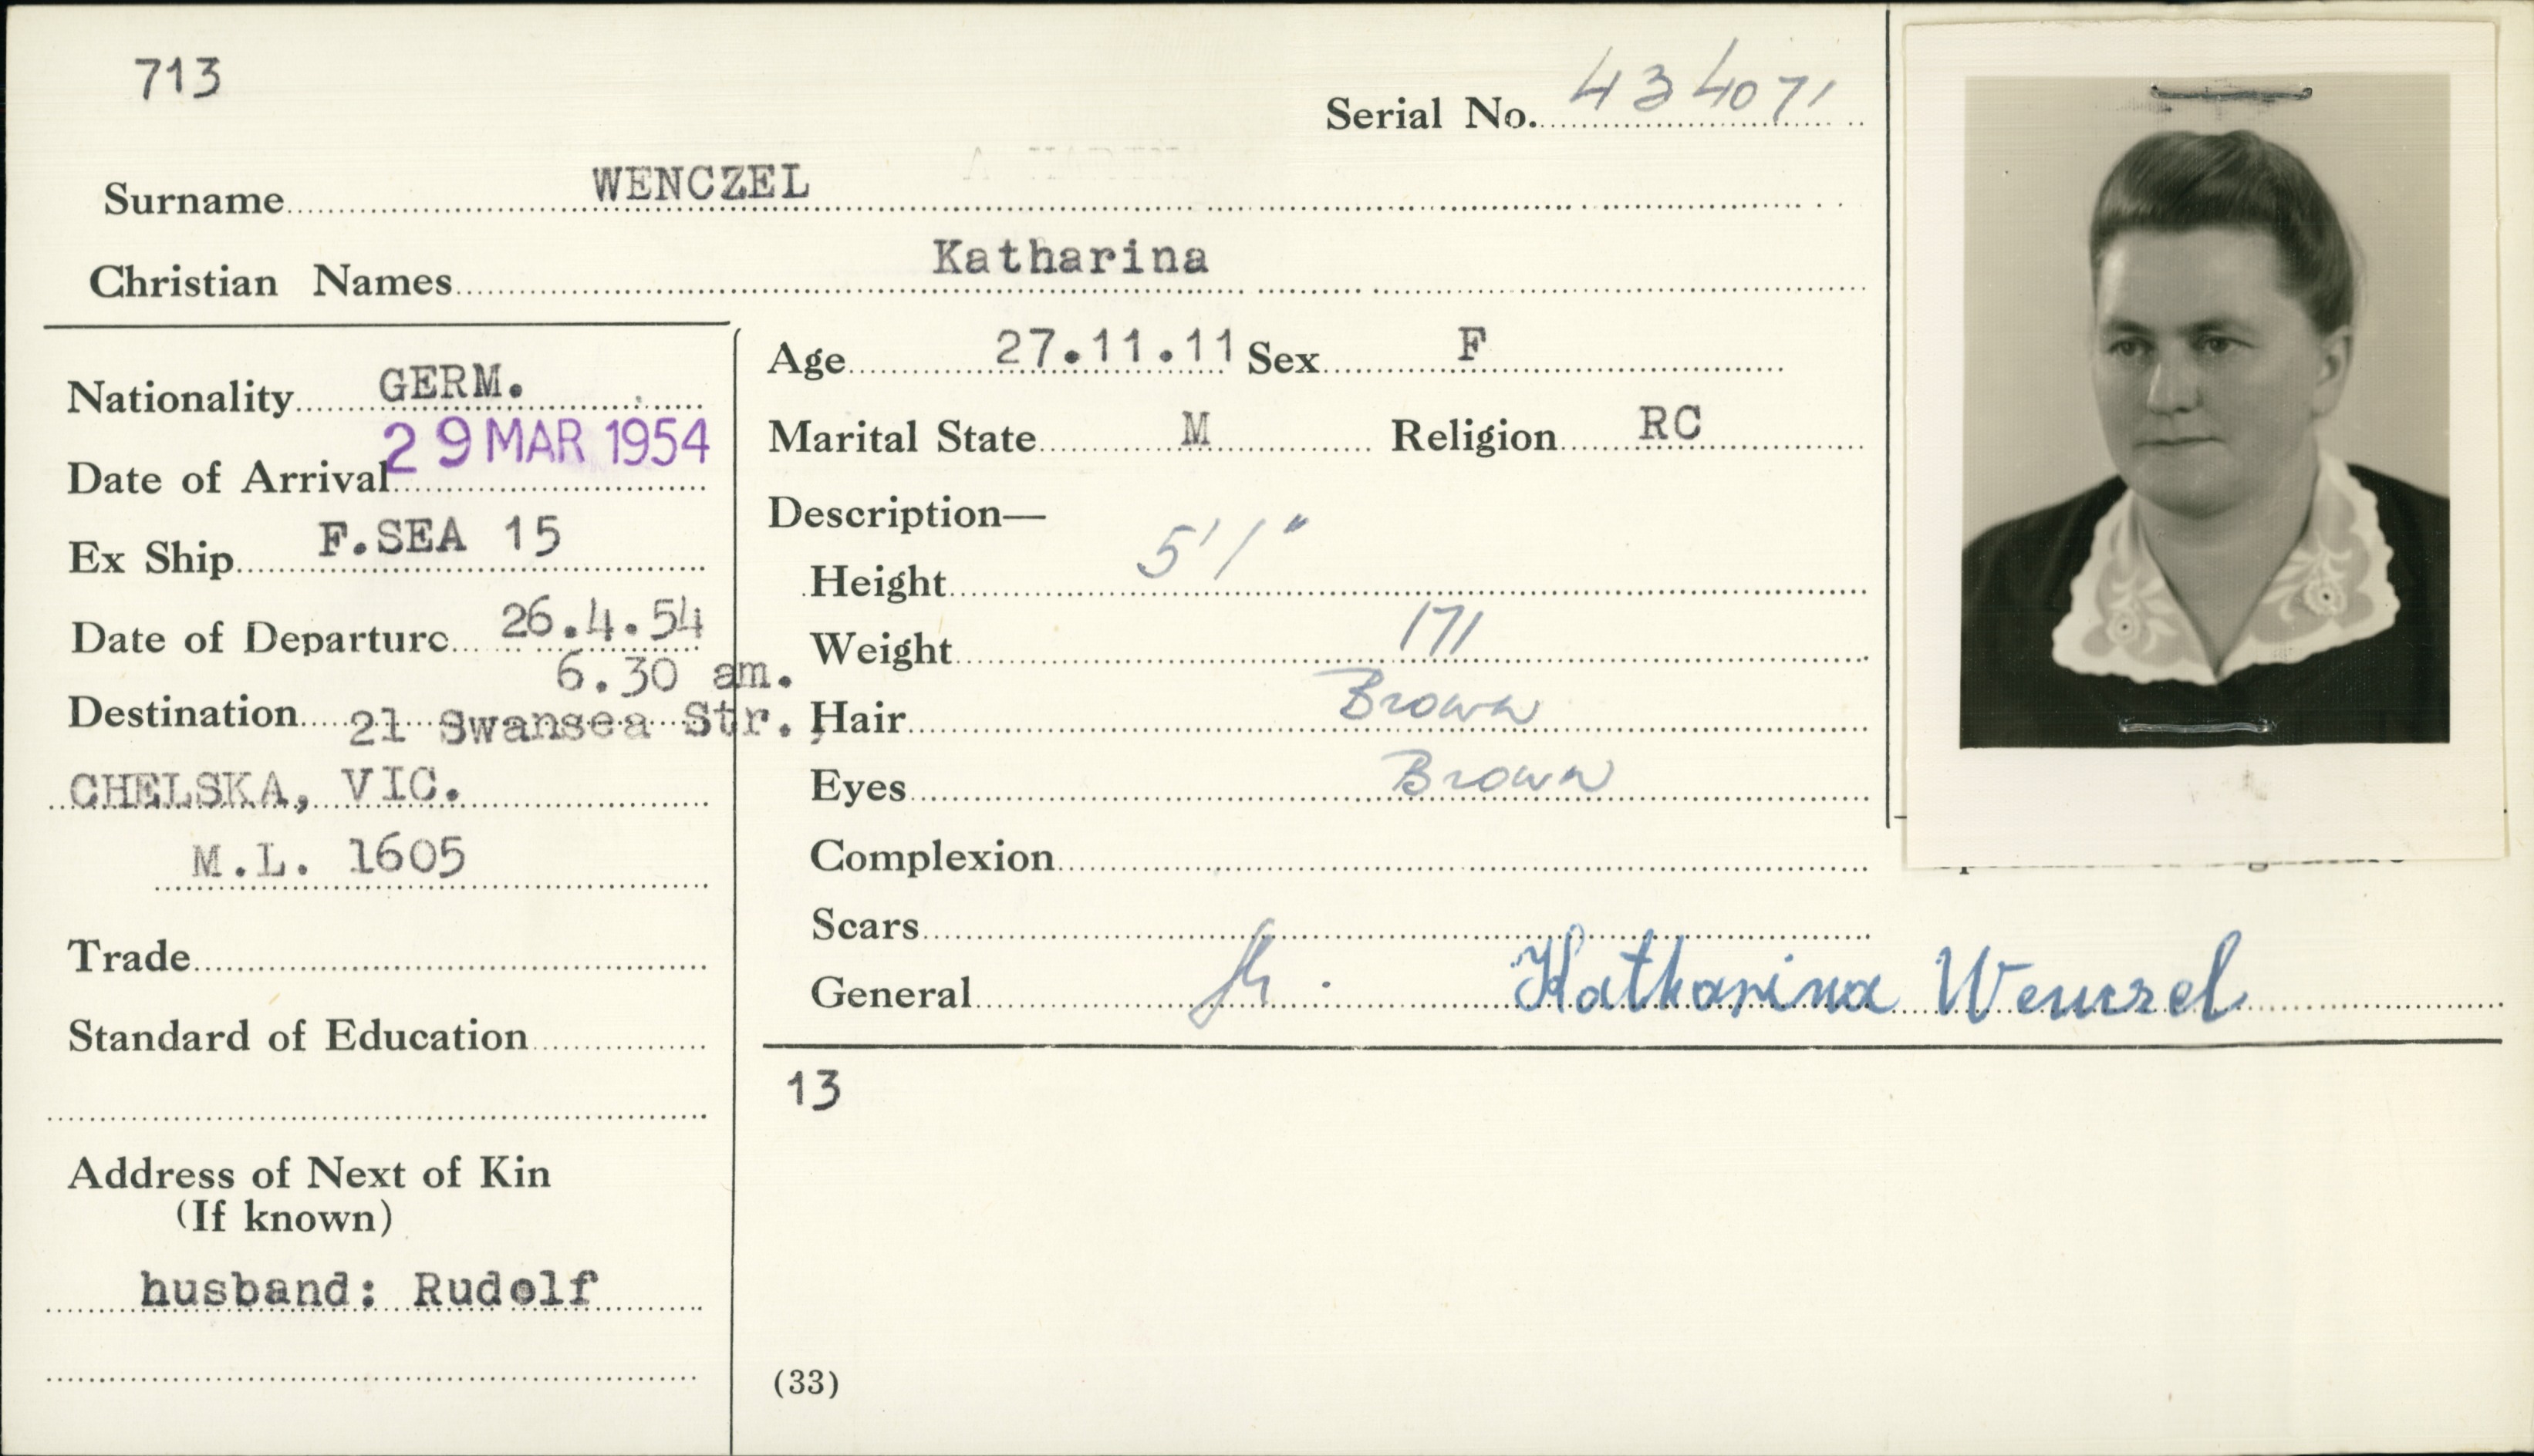 713
Serial No. 434071
Surname WENCZEL
Christian Names Katharina
Nationality GERM.
Date of Arrival 29 MAR 1954
Ex Ship F.SEA 15
Date of Departure 26.4.54
6.30 am.
Destination 21 Swansea Str.,
CHELSKA, VIC.
M.L. 1605
Trade
Standard of Education
Address of Next of Kin
(If known)
husband: Rudolf
Age 27.11.11 Sex F
Marital State M Religion RC
Description—
Height 5'1"
Weight 171
Hair Brown
Eyes Brown
Complexion
Scars
General
Katharina Wenczel
13
(33)